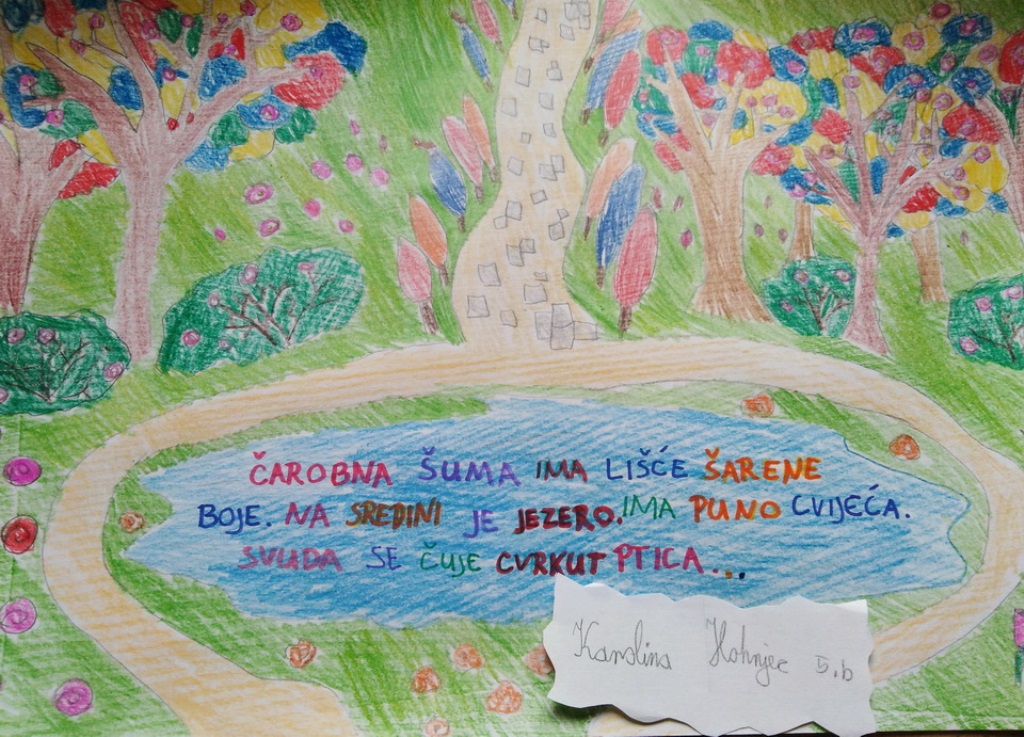 ČAROBNA ŠUMA IMA LIŠĆE ŠARENE
BOJE. NA SREDINI JE JEZERO. IMA PUNO CVIJEĆA.
SVUDA SE ČUJE CVRKUT PTICA...
Karolina Hohnjec 5.b